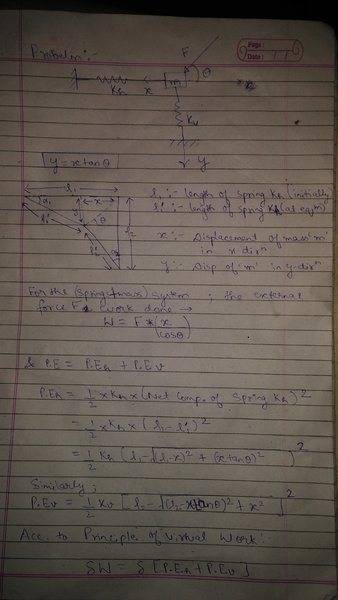 Problem :-
Page :
Date : / /
F
m
θ
Kh
x
Kv
y
y = x tanθ
l1
x
l1 :- length of spring Kh (initially)
l1' :- length of spring Kh (at eqm)
θ
l2
x :- Displacement of mass 'm'
in x dirn
y :- Disp of 'm' in y-dirn
For the (spring+mass) system ; the external
force F work done →
W = F * (x/cosθ)
& P.E = P.Eh + P.Ev
P.Eh = 1/2 x Kh x (Net Comp. of Spring Kh)^2
= 1/2 x Kh x (l1 - l1')^2
= 1/2 Kh [l1 - √(l1-x)^2 + (x tanθ)^2]^2
Similarly ;
P.Ev = 1/2 Kv [l2 - √(l2 - x tanθ)^2 + x^2]^2
Acc. to Principle of Virtual Work :
δW = δ [P.Eh + P.Ev]